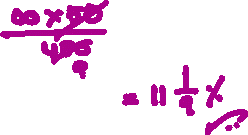 00 × 50
450
9
= 11 1/9 %